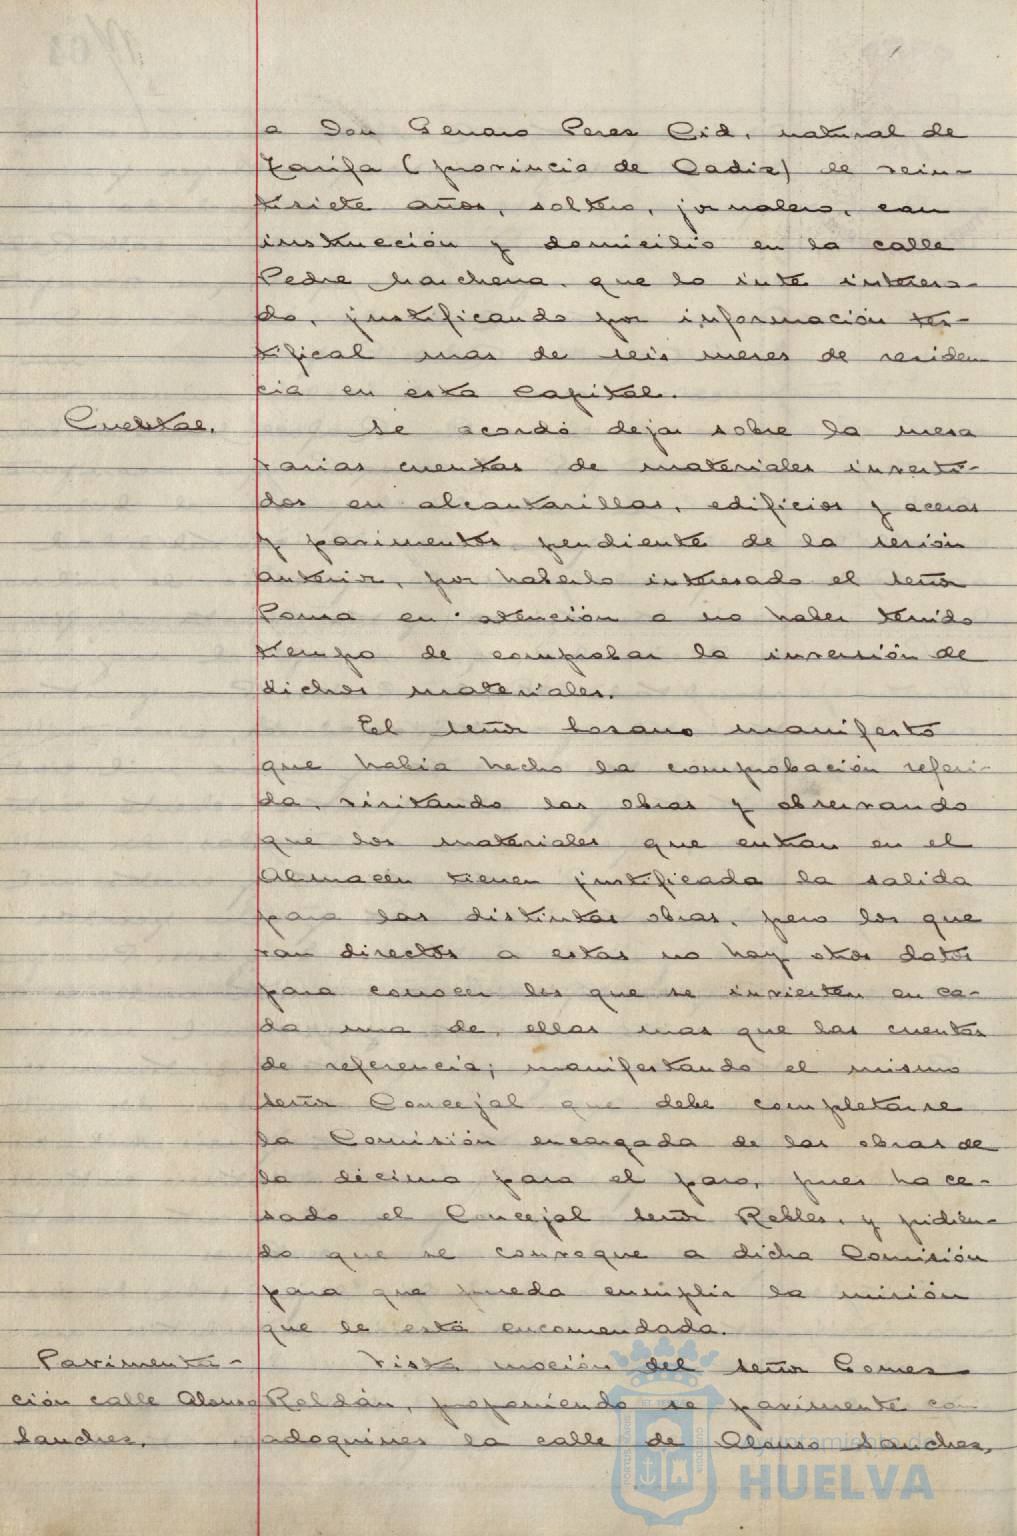 a Don Genaro Peres Cid, natural de
Tarifa (provincia de Cadiz) de vein-
tisiete años, soltero, jornalero, con
instrucción y domicilio en la calle
Padre Marchena, que lo inte interesa-
do, justificando por información tes-
tifical mas de seis meses de residen
cia en esta Capital.
Cuentas.
Se acordó dejar sobre la mesa
varias cuentas de materiales inverti-
dos en alcantarillas, edificios y aceras
y pavimentos, pendiente de la sesión
anterior, por haberlo interesado el señor
Ponsa en atención a no haber tenido
tiempo de comprobar la inversión de
dichos materiales.
El señor Losano manifestó
que había hecho la comprobación referi-
da, visitando las obras y observando
que los materiales que entran en el
Almacén tienen justificada la salida
para las distintas obras, pero los que
van directos a estas no hay otros datos
para conocer los que se invierten en ca-
da una de ellas mas que las cuentas
de referencia; manifestando el mismo
señor Concejal que debe completarse
la Comisión encargada de las obras de
la décima para el paro, pues ha ce-
sado el Concejal señor Robles, y pidien-
do que se convoque a dicha Comisión
para que pueda cumplir la misión
que le está encomendada.
Pavimenta-
ción calle Alonso
Sanches.
Vista moción del señor Gomes
Roldán, proponiendo se pavimente con
adoquines la calle de Alonso Sanches,
Ayuntamiento de
HUELVA